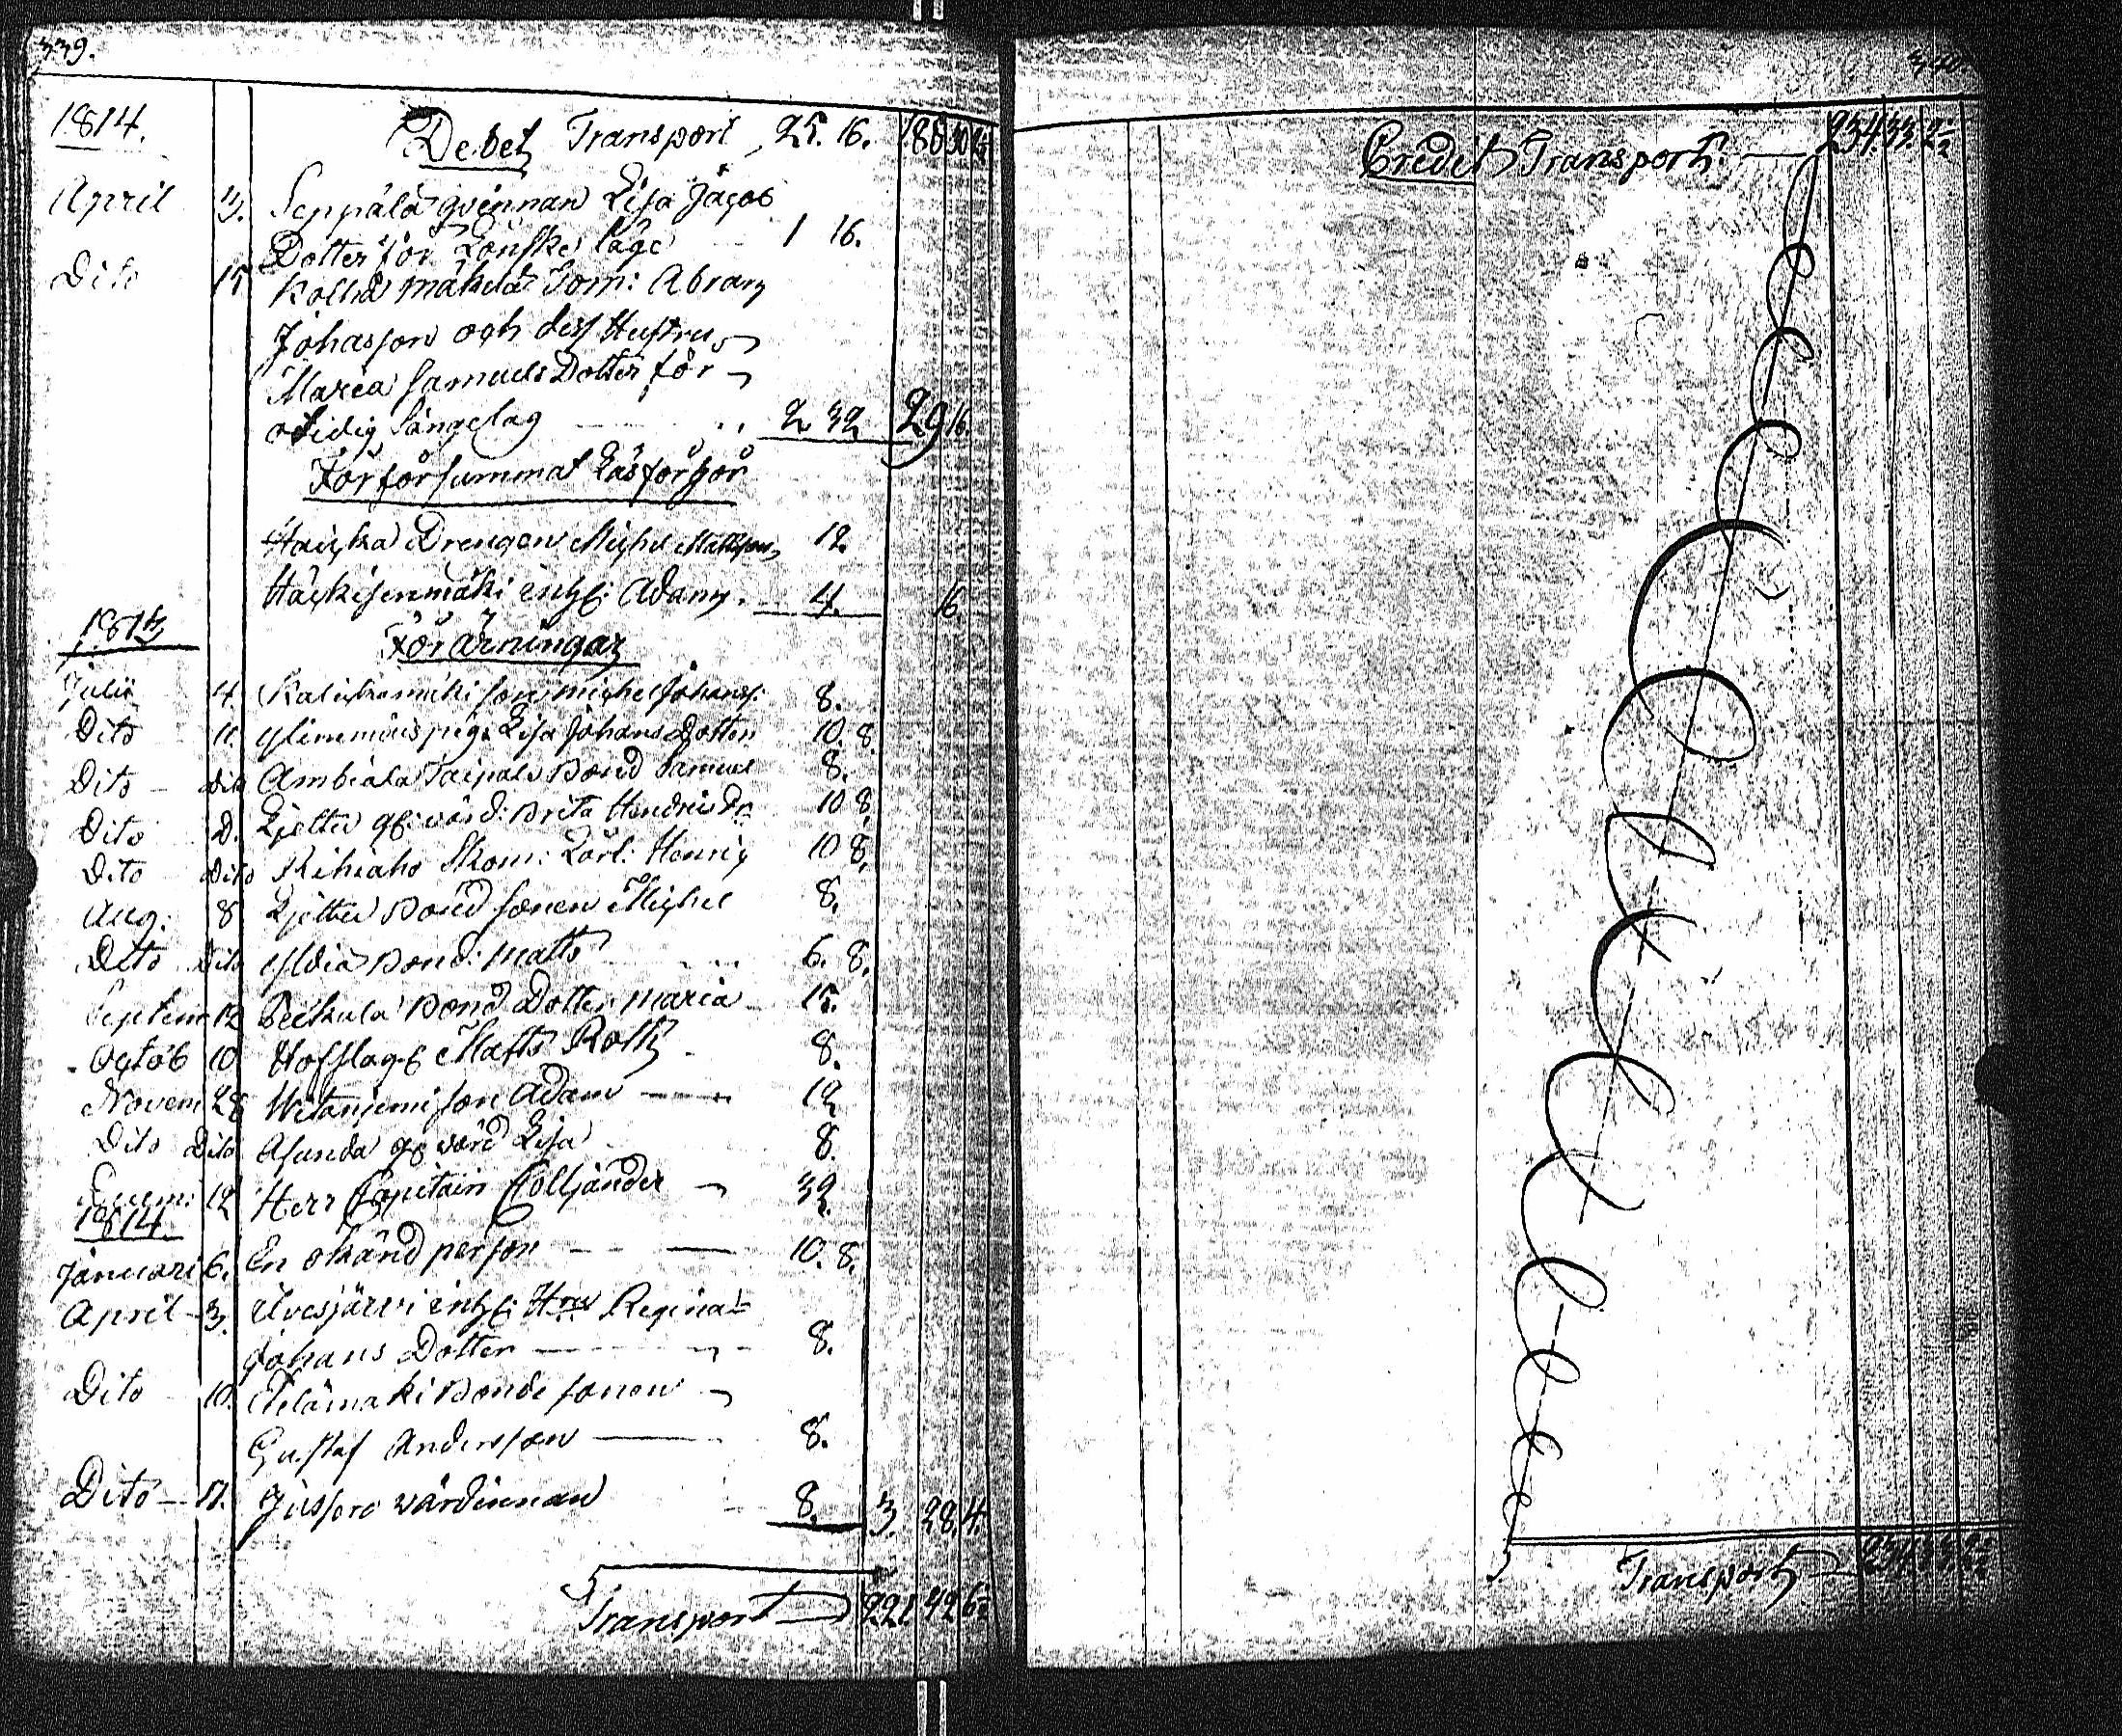 339.
1814. Debet Transport 25. 16.
April 3. Seppälä qvinnan Lisa Jacobs
Dotter för Lönske läge 1 16.
Dito 15 Kolha mäkelä Torn: Abram
Johansson och dess Hustru
Maria Samuels Dotter för
otidig Sängelag 2 32 29 16.
För försummat Läsförhör
Drengen Michel Mattsson 12.
Häckisenmäki inhs: Adam. 4. 16.
1813
Föräringar
Julii 4. son Michel Johanss: 8.
Dito 11. piga Lisa Johans Dotter 10. 8.
Dito dito Ambiala Taipale Bond Samuel 8.
Dito D. Ljettu värd: Brita Hendrics Dr 10 8.
Dito Dito Rihiaho Skom: Lärl: Henric 10 8.
Aug. 8 Ljettu Bond sonen Michel 8.
Dito Dito Bond: Matts 6. 8.
Septem 12 Bond Dotter Maria 15.
Octob 10 Hofslag: Matts Roth 8.
Novem 28 son Adam 12
Dito Dito Asunda värd Lisa 8.
12 Herr Capitain Colljander 32.
1814.
Januari 6. En okänd person 10. 8.
April 3. Ilvesjärvi inhs: Hru Regina
Johans Dotter 8.
Dito 10. Bonde sonen
Gustaf Andersson 8.
Dito 17. Jussero wärdinnan 8. 3. 28. 4.
Transport 221 42 6½
Credit Transport 234. 33. 2½
Transport 234. 33. 2½